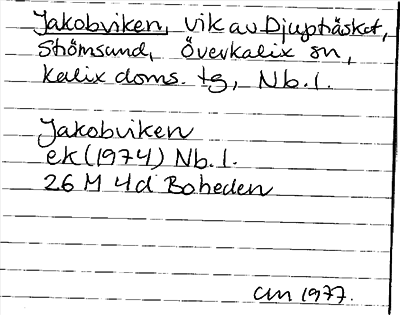 Jakobviken, vik av Djupträsket,
Strömsund, Överkalix sn,
Kalix doms. tg, Nb. l.
Jakobviken
ek (1974) Nb. l.
26 M 4d Boheden
cm 1977.